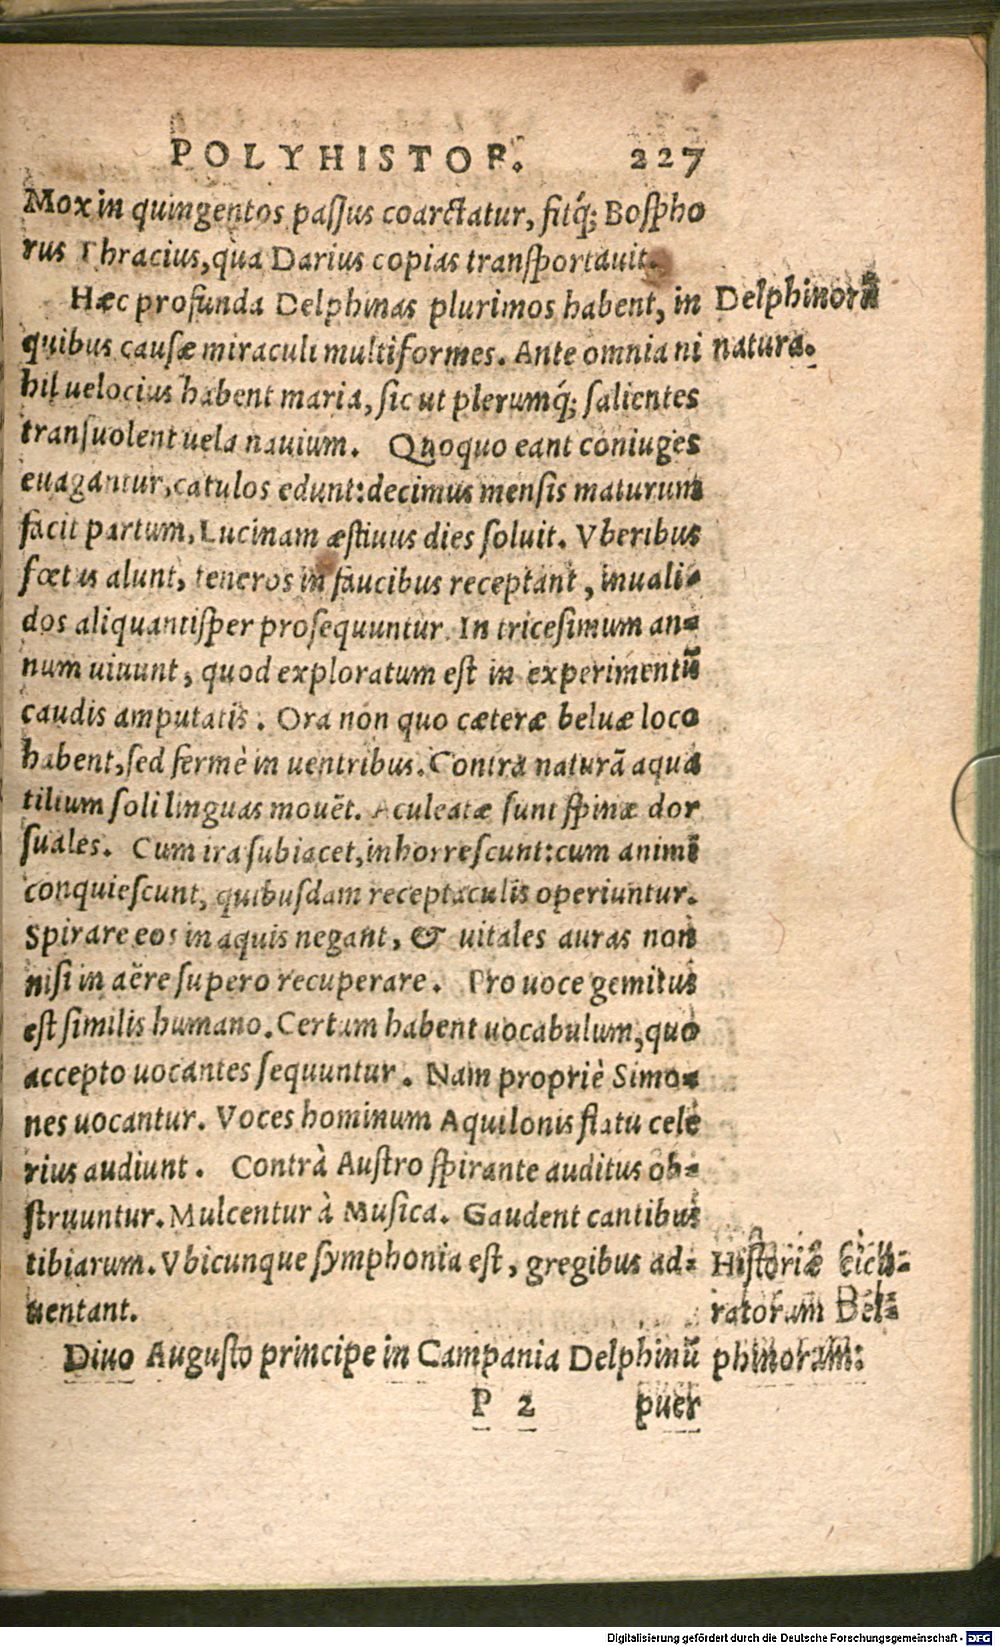 POLYHISTOR. 227
Mox in quingentos passus coarctatur, fitq́; Bospho
rus Thracius, qua Darius copias transportauit.
Hæc profunda Delphinas plurimos habent, in
quibus causæ miraculi multiformes. Ante omnia ni
hil uelocius habent maria, sic ut plerumq́; salientes
transuolent uela nauium. Quoquo eant coniuges
euagantur, catulos edunt: decimus mensis maturum
facit partum, Lucinam æstiuus dies soluit. Vberibus
fœtus alunt, teneros in faucibus receptant, inuali-
dos aliquantisper prosequuntur. In tricesimum an-
num uiuunt, quod exploratum est in experimentū
caudis amputatis. Ora non quo cæteræ beluæ loco
habent, sed fermè in uentribus. Contra naturā aqua
tilium soli linguas mouēt. Aculeatæ sunt spinæ dor
suales. Cum ira subiacet, inhorrescunt: cum animi
conquiescunt, quibusdam receptaculis operiuntur.
Spirare eos in aquis negant, & uitales auras non
nisi in aëre supero recuperare. Pro uoce gemitus
est similis humano. Certum habent uocabulum, quo
accepto uocantes sequuntur. Nam propriè Simo-
nes uocantur. Voces hominum Aquilonis flatu cele
rius audiunt. Contrà Austro spirante auditus ob-
struuntur. Mulcentur à Musica. Gaudent cantibus
tibiarum. Vbicunque symphonia est, gregibus ad-
uentant.
Diuo Augusto principe in Campania Delphinū
P 2 puer
Delphinorū
natura.
Historiæ cicu-
ratorum Del-
phinorum:
Digitalisierung gefördert durch die Deutsche Forschungsgemeinschaft - DFG